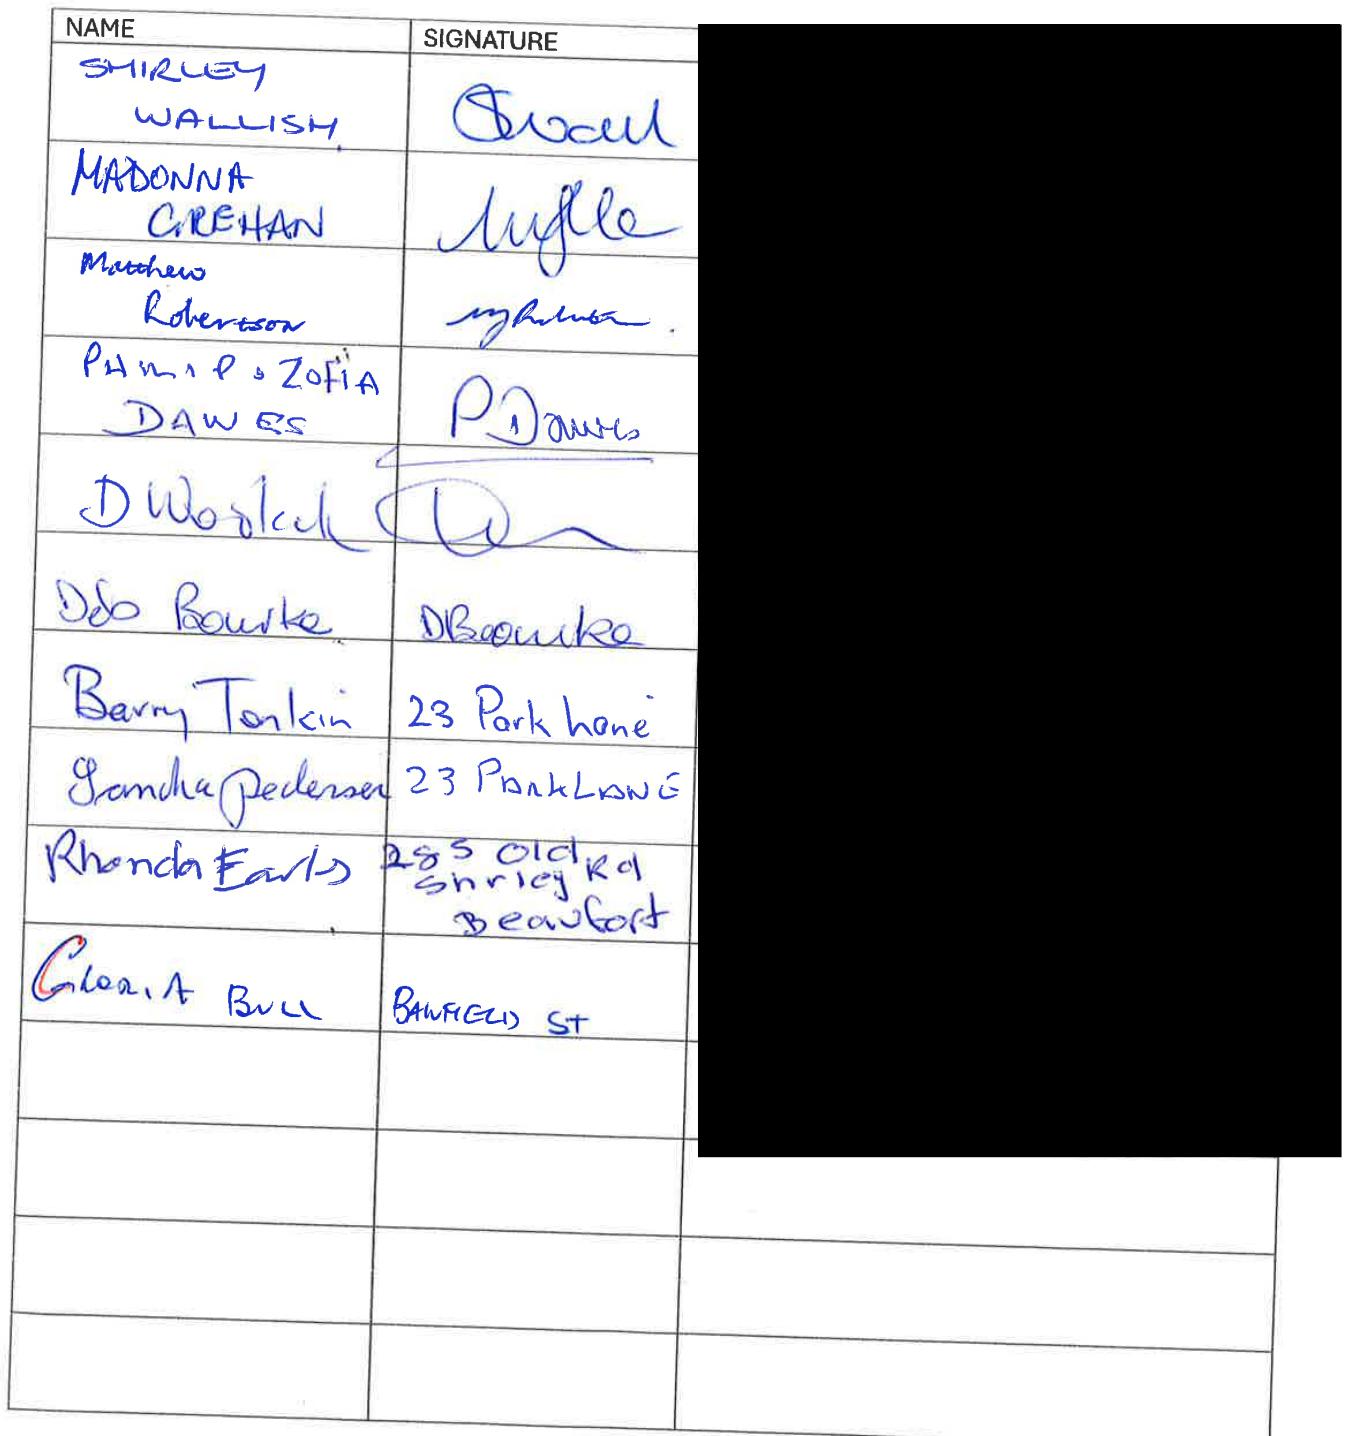 NAME SIGNATURE
SHIRLEY
WALLISH
MADONNA
GREHAN
Matthew
Robertson
ZOFIA
DAWES P Dawes
D
Deb Bourke DBourke
Barry Tonkin 23 Park Lane
Sandra Pedersen 23 PARK LANE
Rhonda Earls 285 Old
Shirley Rd
Beaufort
GLORIA BULL BANFIELD ST